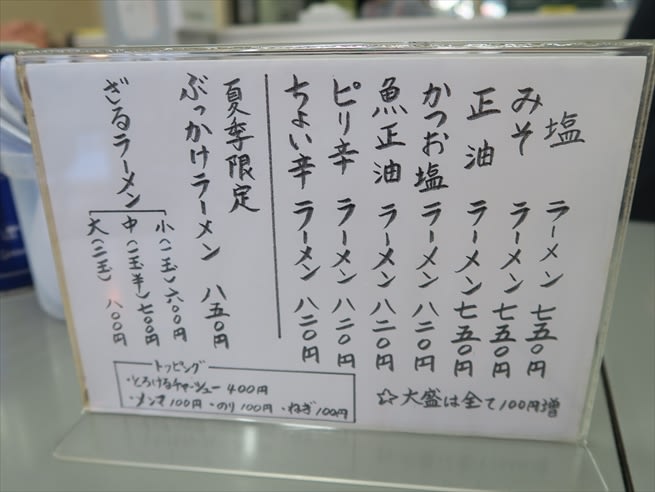 塩 ラーメン 七五〇円
みそ ラーメン 七五〇円
正油 ラーメン 七五〇円
かつお塩 ラーメン 八二〇円
魚正油 ラーメン 八二〇円
ピリ辛 ラーメン 八二〇円
ちょい辛 ラーメン 八二〇円
☆大盛は全て100円増
夏季限定
ぶっかけラーメン 八五〇円
ざるラーメン
小(一玉)六〇〇円
中(一玉半)七〇〇円
大(二玉) 八〇〇円
トッピング
・とろけるチャーシュー 400円
・メンマ100円・のり100円・ねぎ100円